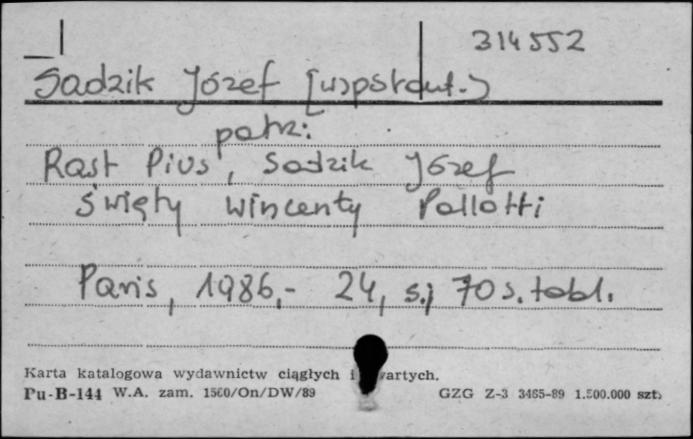 314552
Sadzik Józef [wspśraut.)
patrz:
Rast Pius, Sadzik Józef
Święty Wincenty Pallotti
Paris, 1986,- 24, s.; 70 s. tabl.
Karta katalogowa wydawnictw ciągłych i wartych.
Pu-B-144 W.A. zam. 1560/On/DW/89 GZG Z-3 3465-89 1.500.000 szt.